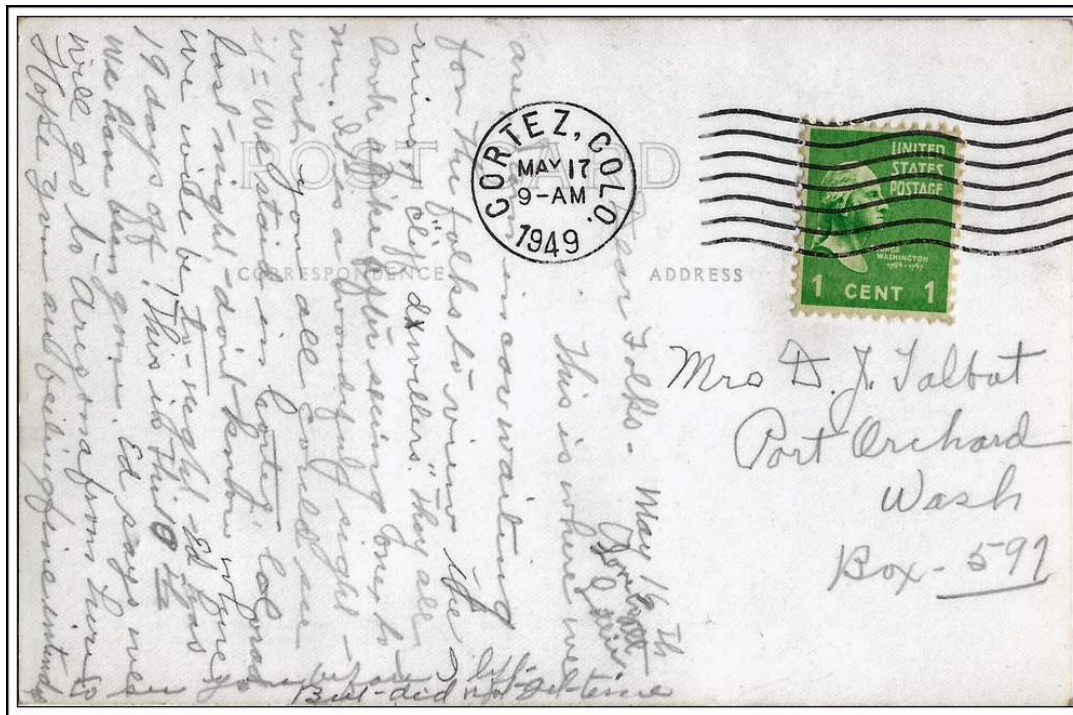 POST CARD
CORRESPONDENCE
ADDRESS
CORTEZ, COLO.
MAY 17
9-AM
1949
UNITED
STATES
POSTAGE
WASHINGTON
1789-1797
1 CENT 1
Mrs D. J. Talbot
Port Orchard
Wash
Box - 597
Dear Folks - May 16 th
This is where we
are in car waiting
for the folks to view the
ruins of "Cliff dwellers." They all
look alike after seeing one, to
me. It is a wonderful sight -
wish you all could see
it = We staid in Cortez, Colorado
last night - don't know where
we will be to-night. Ed has
19 days off. This is the 10 th
we have been gone. Ed says we
will go to Arizona from here
Hope you are feeling fine intended to
see you before I left
But did not get time